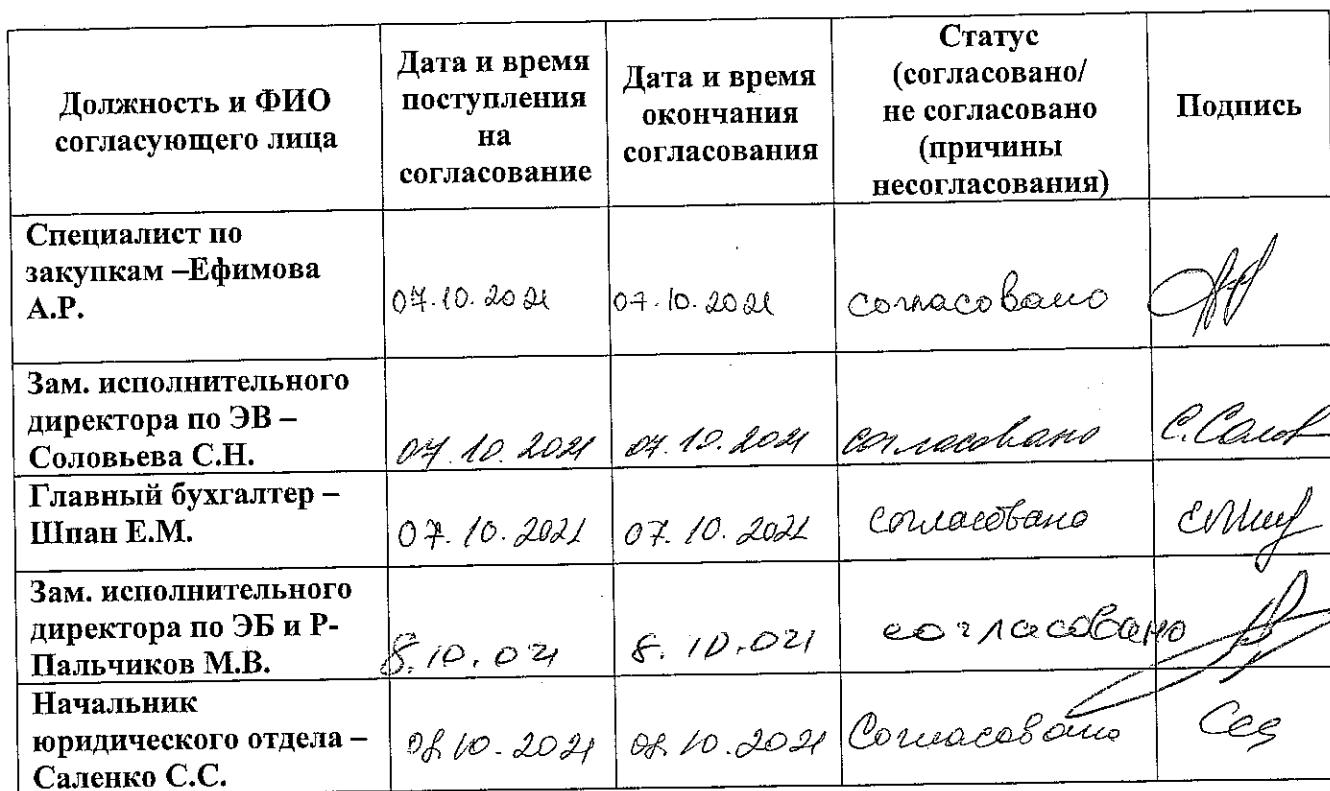 Должность и ФИО
согласующего лица
Дата и время
поступления
на
согласование
Дата и время
окончания
согласования
Статус
(согласовано/
не согласовано
(причины
несогласования)
Подпись
Специалист по
закупкам –Ефимова
А.Р.
07.10.2021
07.10.2021
согласовано
Зам. исполнительного
директора по ЭВ –
Соловьева С.Н.
07.10.2021
07.10.2021
согласовано
С.Солов
Главный бухгалтер –
Шпан Е.М.
07.10.2021
07.10.2021
согласовано
Зам. исполнительного
директора по ЭБ и Р-
Пальчиков М.В.
8.10.021
8.10.021
согласовано
Начальник
юридического отдела –
Саленко С.С.
08.10.2021
08.10.2021
Согласовано